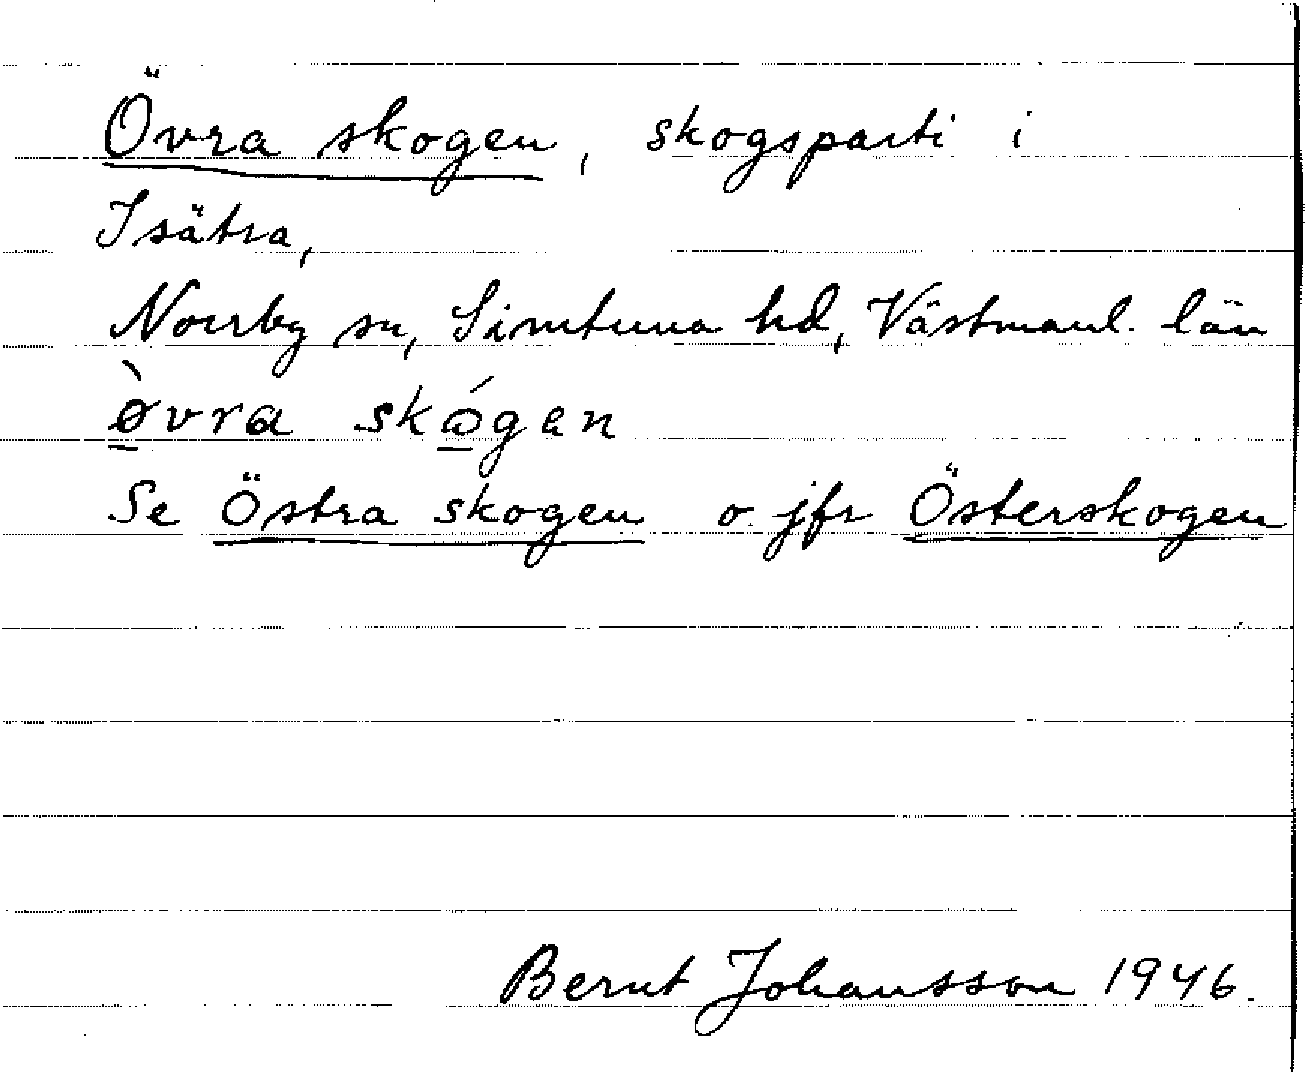 Övra skogen, skogsparti i
Isätra,
Norrby sn, Simtuna hd, Västmanl. län
ø̲̀vra skǫ̲́gen
Se Östra skogen o. jfr Österskogen
Bernt Johansson 1946.